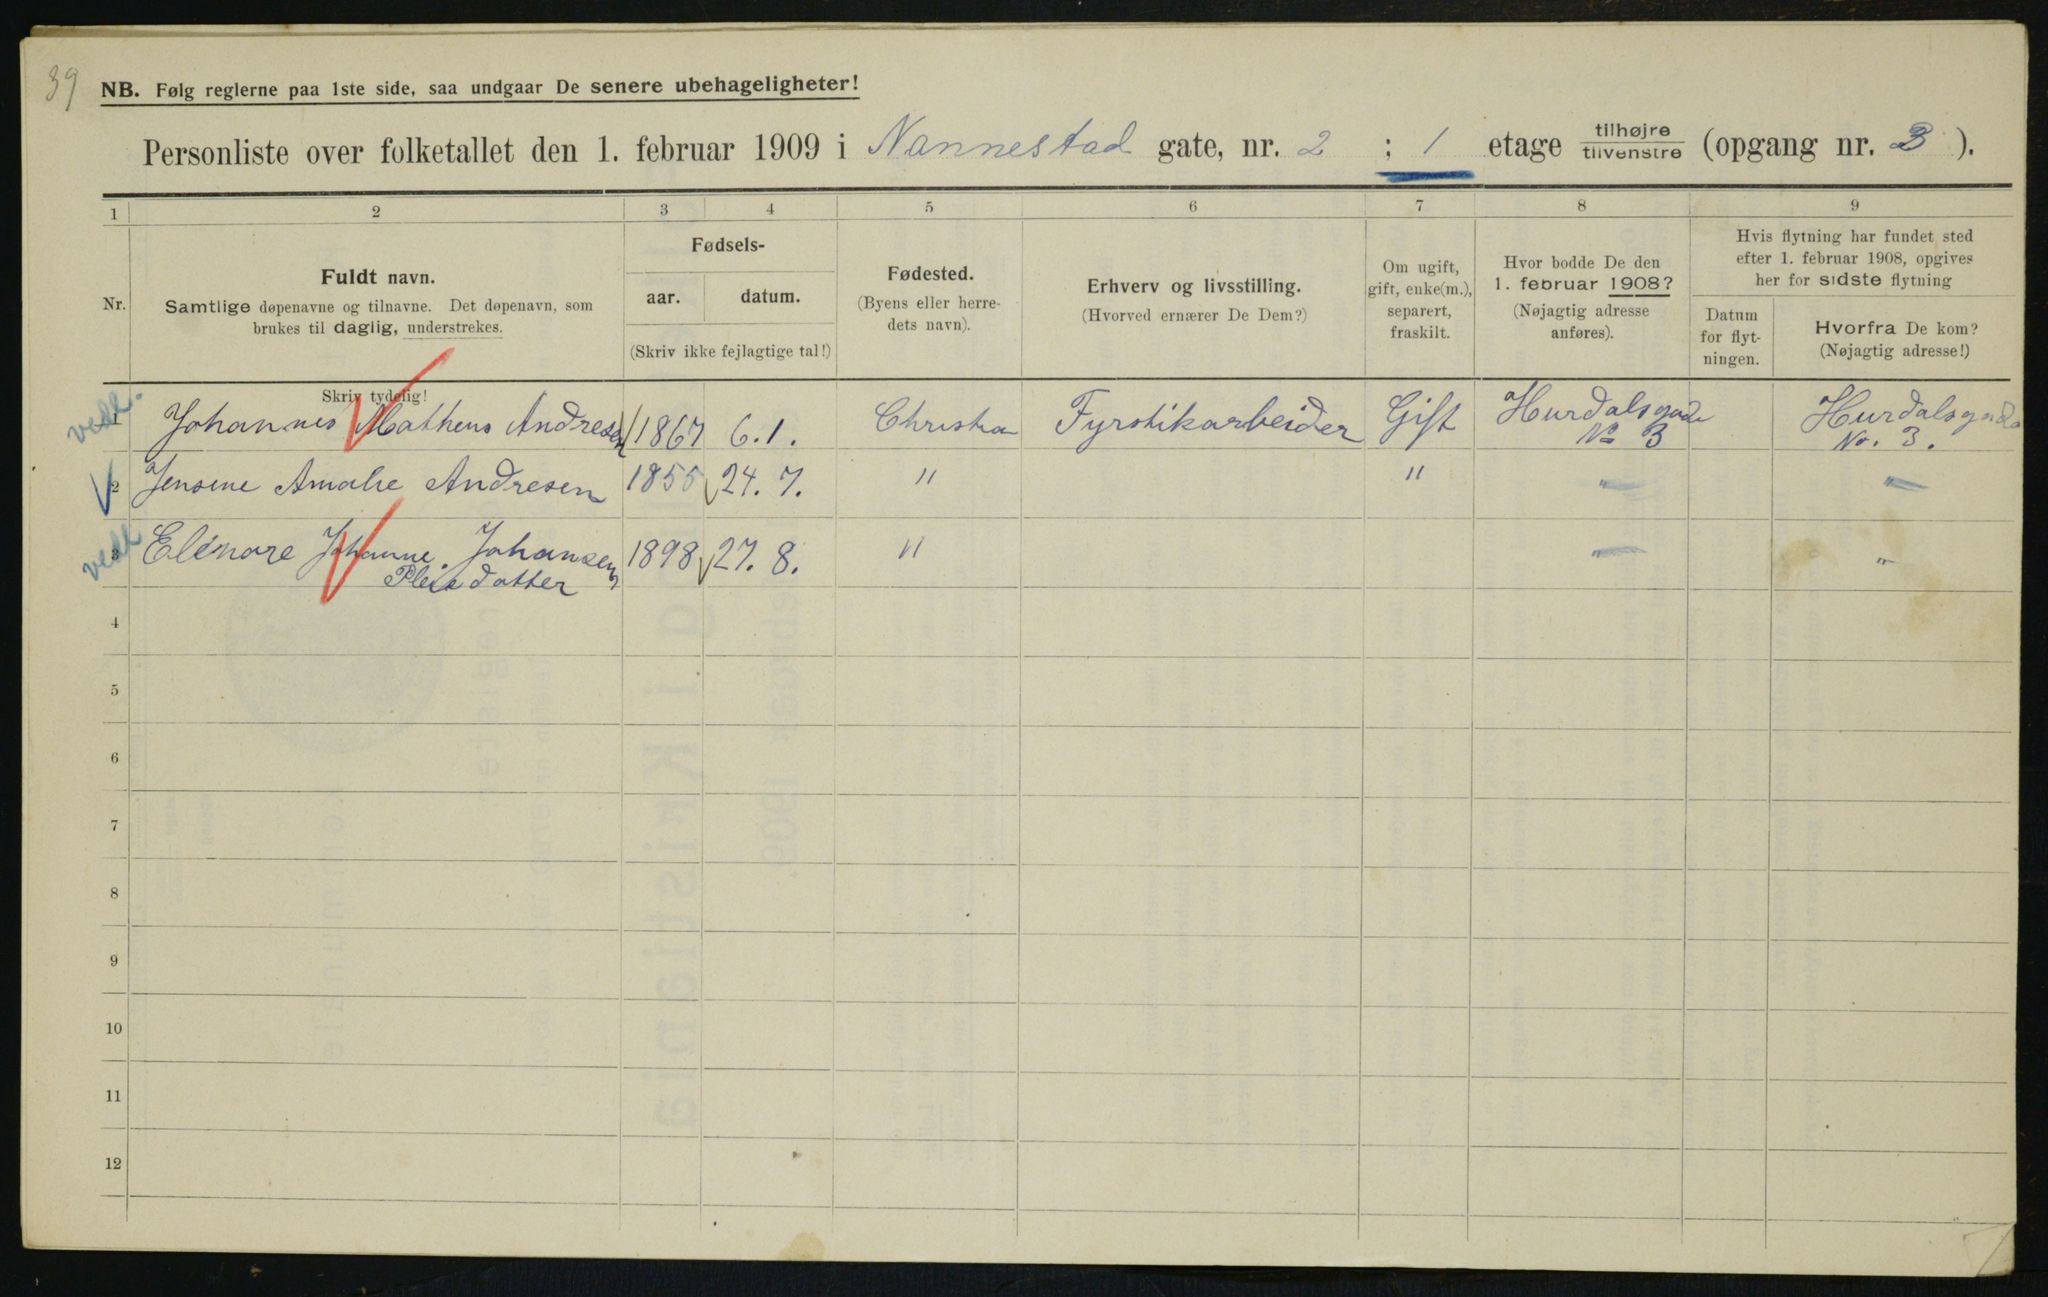 39
NB. Følg reglerne paa 1ste side, saa undgaar De senere ubehageligheter!
Personliste over folketallet den 1. februar 1909 i Nannestad gate, nr. 2 ; 1 etage tilhøjre / tilvenstre (opgang nr. 3).
1 2 3 4 5 6 7 8 9
Nr.
Fuldt navn.
Samtlige døpenavne og tilnavne. Det døpenavn, som
brukes til daglig, understrekes.
Skriv tydelig!
Fødsels-
aar. datum.
(Skriv ikke fejlagtige tal!)
Fødested.
(Byens eller herre-
dets navn).
Erhverv og livsstilling.
(Hvorved ernærer De Dem?)
Om ugift,
gift, enke(m.),
separert,
fraskilt.
Hvor bodde De den
1. februar 1908?
(Nøjagtig adresse
anføres).
Hvis flytning har fundet sted
efter 1. februar 1908, opgives
her for sidste flytning
Datum
for flyt-
ningen.
Hvorfra De kom?
(Nøjagtig adresse!)
vedl. 1 Johannes Matheus Andresen 1867 6.1. Christia Fyrstikarbeider Gift Hurdalsgade No 3 Hurdalsgade No. 3.
2 Jensine Amalie Andresen 1855 24.7. " " " "
vedl 3 Elenore Johanne Johansen 1898 27.8. " " "
Pleiedatter
4
5
6
7
8
9
10
11
12